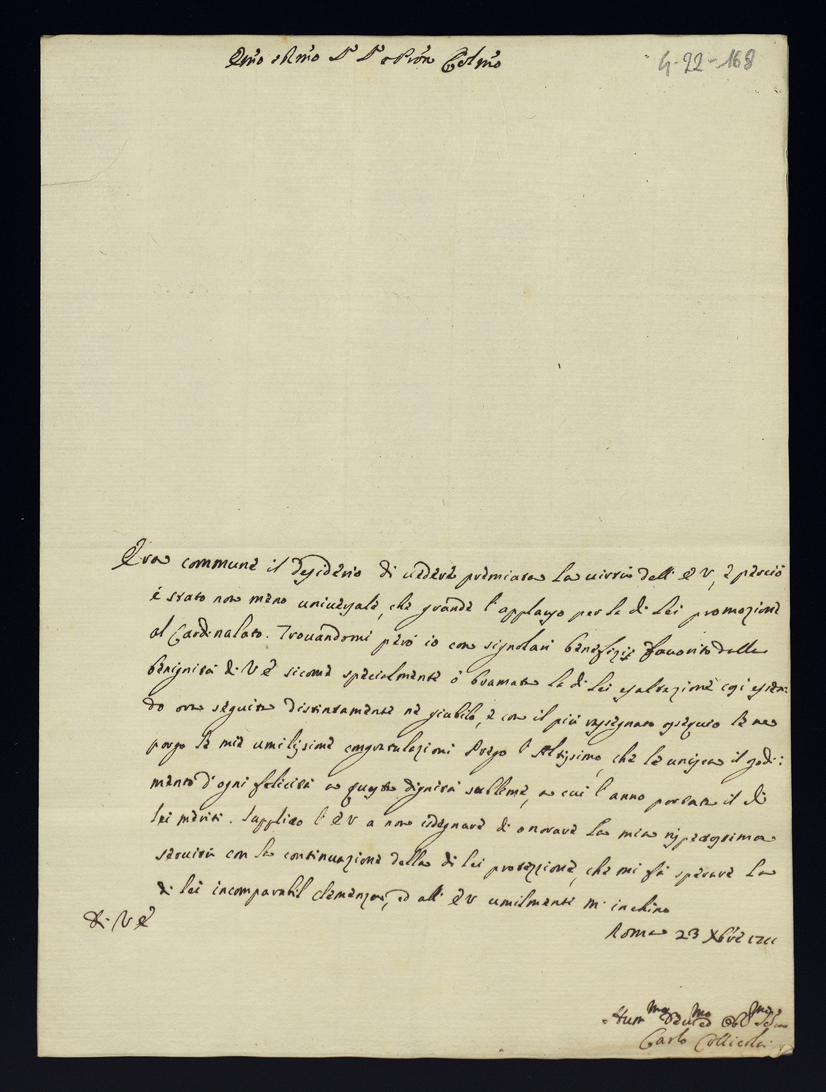 Emo e Rmo Sr Sr e Pron Colmo
4-22-168
Era commune il desiderio di uedere premiata la uirtù dell' E V, e perciò
è stato non meno uniuersale, che grande l' applauso per la di Lei promozione
al Cardinalato. Trouandomi però io con singolari benefizii fauorito dalla
benignità di V E sicome specialmente ò bramata la di Lei esaltazione così essen-
do ora seguita distintamente ne giubilo, e con il più rassegnato ossequio Le ne
porgo le mie umilissime congratulazioni Prego l' Altissimo, che Le unisca il godi:
mento d' ogni felicità a questa dignità sublime, a cui l' anno portata il di
Lei meriti. Supplico l' E V a non isdegnare di onorare la mia rispettosissima
seruitù con la continuazione della di lei protezzione, che mi fà sperare la
di lei incomparabil clemenza, ed all' E V umilmente m' inchino
di V E
Roma 23 Xbre 1711
Humo Deuo ed Obbmo Seruo
Carlo Collicola